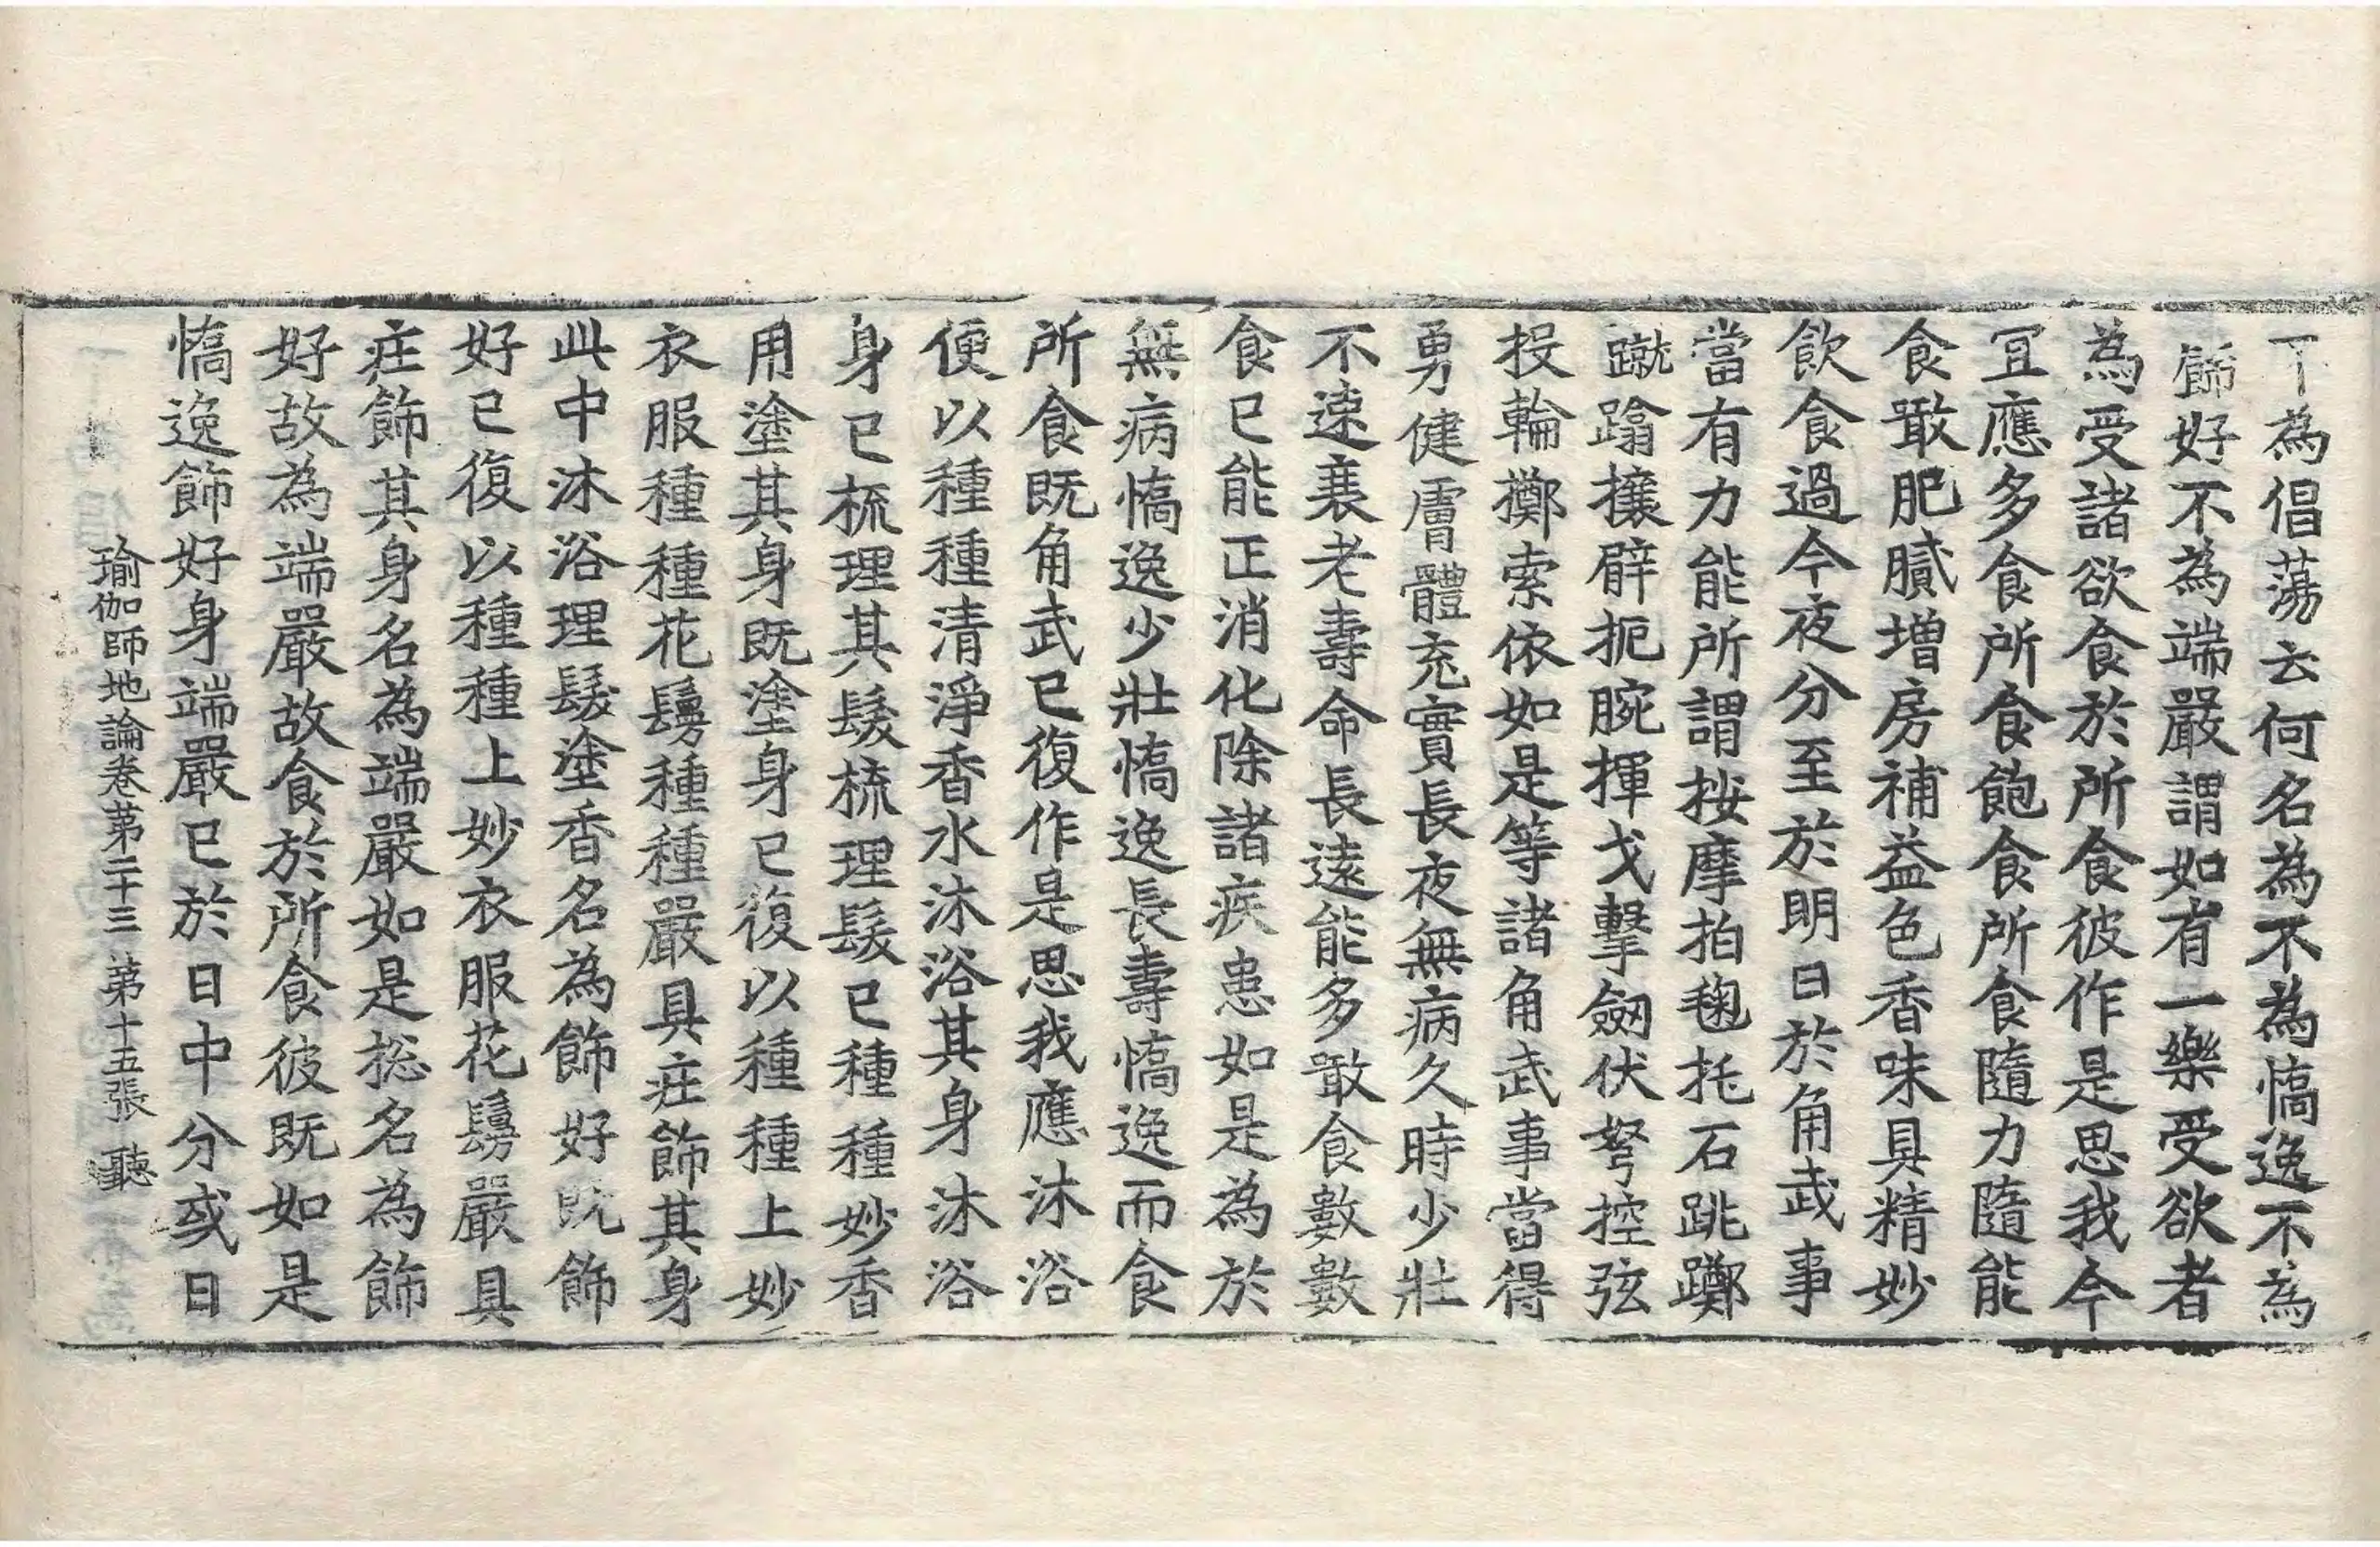 下為倡蕩云何名為不為憍逸不為
飾好不為端嚴謂如有一樂受欲者
為受諸欲食於所食彼作是思我今
冝應多食所食飽食所食隨力隨能
食噉肥膩增房補益色香味具精妙
飲食過今夜分至於明日於角武事
當有力能所謂按摩拍毱托石跳躑
蹴蹹攘臂扼腕揮戈擊劒伏弩控弦
投輪擲索依如是等諸角武事當得
勇健膚體充實長夜無病久時少壯
不速衰老壽命長遠能多噉食數數
食已能正消化除諸疾患如是為於
無病憍逸少壯憍逸長壽憍逸而食
所食既角武已復作是思我應沐浴
便以種種清淨香水沐浴其身沐浴
身已梳理其髮梳理髮已種種妙香
用塗其身既塗身已復以種種上妙
衣服種種花鬘種種嚴具莊飾其身
此中沐浴理髮塗香名為飾好既飾
好已復以種種上妙衣服花鬘嚴具
莊飾其身名為端嚴如是揔名為飾
好故為端嚴故食於所食彼既如是
憍逸飾好身端嚴已於日中分或日
瑜伽師地論卷第二十三 第十五張 聽